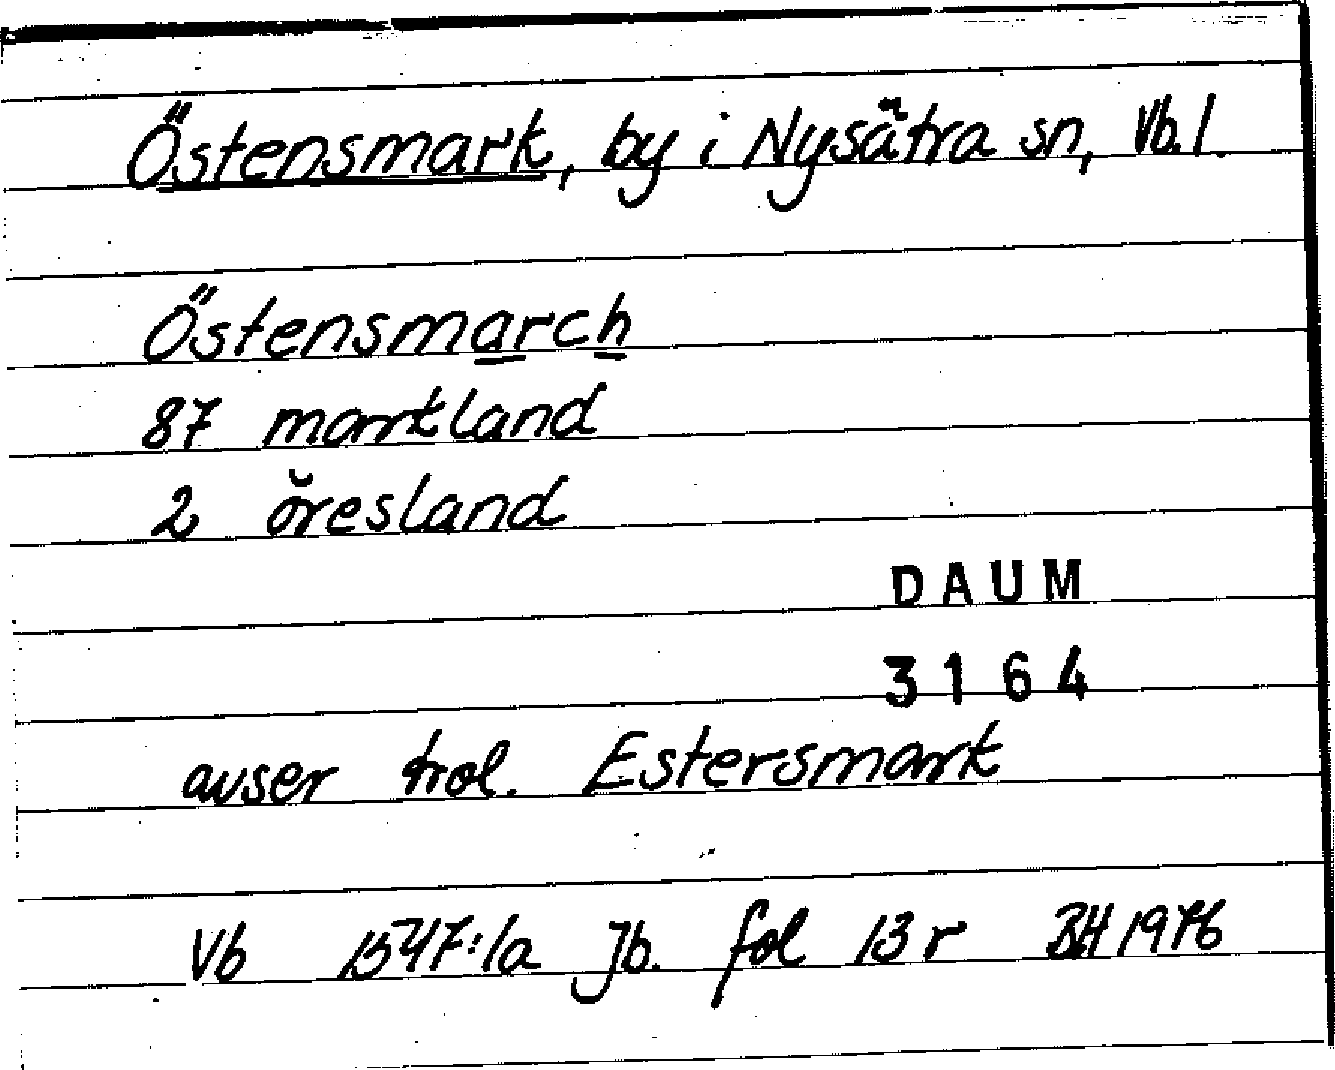 Östensmark, by i Nysätra sn, Vb.l.
Östensmarch
87 markland
2 öresland
DAUM
3164
avser trol. Estersmark
Vb 1547:1a Jb. fol 13 r BH 1976